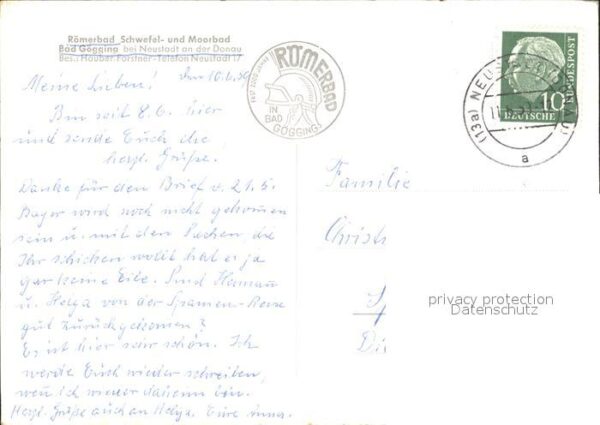 Römerbad Schwefel- und Moorbad
Bad Gögging bei Neustadt an der Donau
Bes.: Hauber-Forstner - Telefon Neustadt 17
RÖMERBAD
IN
BAD
GÖGGING
(13a) NEUSTADT
a
10
DEUTSCHE
BUNDESPOST
Meine Lieben! den 10.6.56
Bin seit 8.6. hier
und sende Euch die
herzl. Grüße.
Danke für den Brief v. 21.5.
Bayer wird noch nicht gekommen
sein u. mit den Sachen, die
Ihr schicken wollt hat es ja
gar keine Eile. Sind Hermann
u. Helga von der Spanien-Reise
gut zurückgekommen?
Es ist hier sehr schön. Ich
werde Euch wieder schreiben,
wenn ich wieder daheim bin.
Herzl. Grüße auch an Helga. Eure Anna.
Familie
Christ
Di
privacy protection
Datenschutz